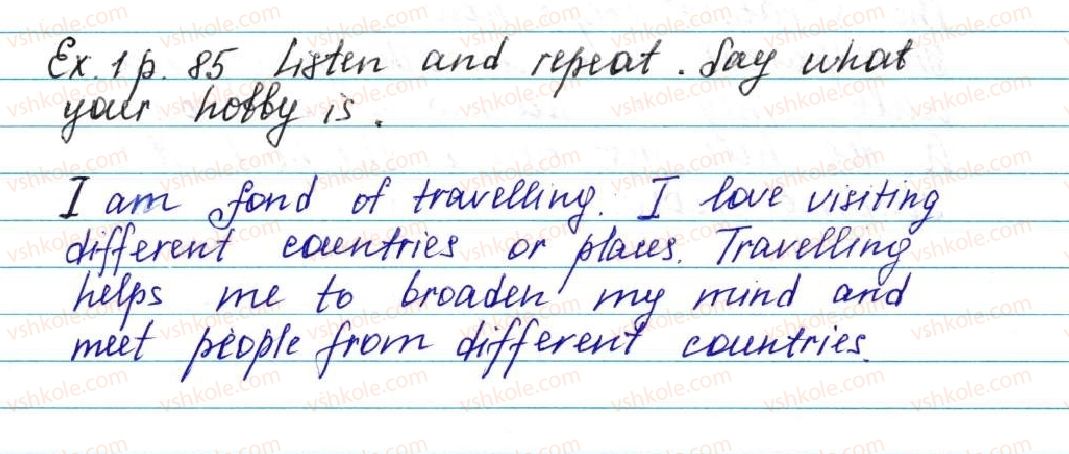 Ex. 1 p. 85 Listen and repeat. Say what
your hobby is.
I am fond of travelling. I love visiting
different countries or places. Travelling
helps me to broaden my mind and
meet people from different countries.